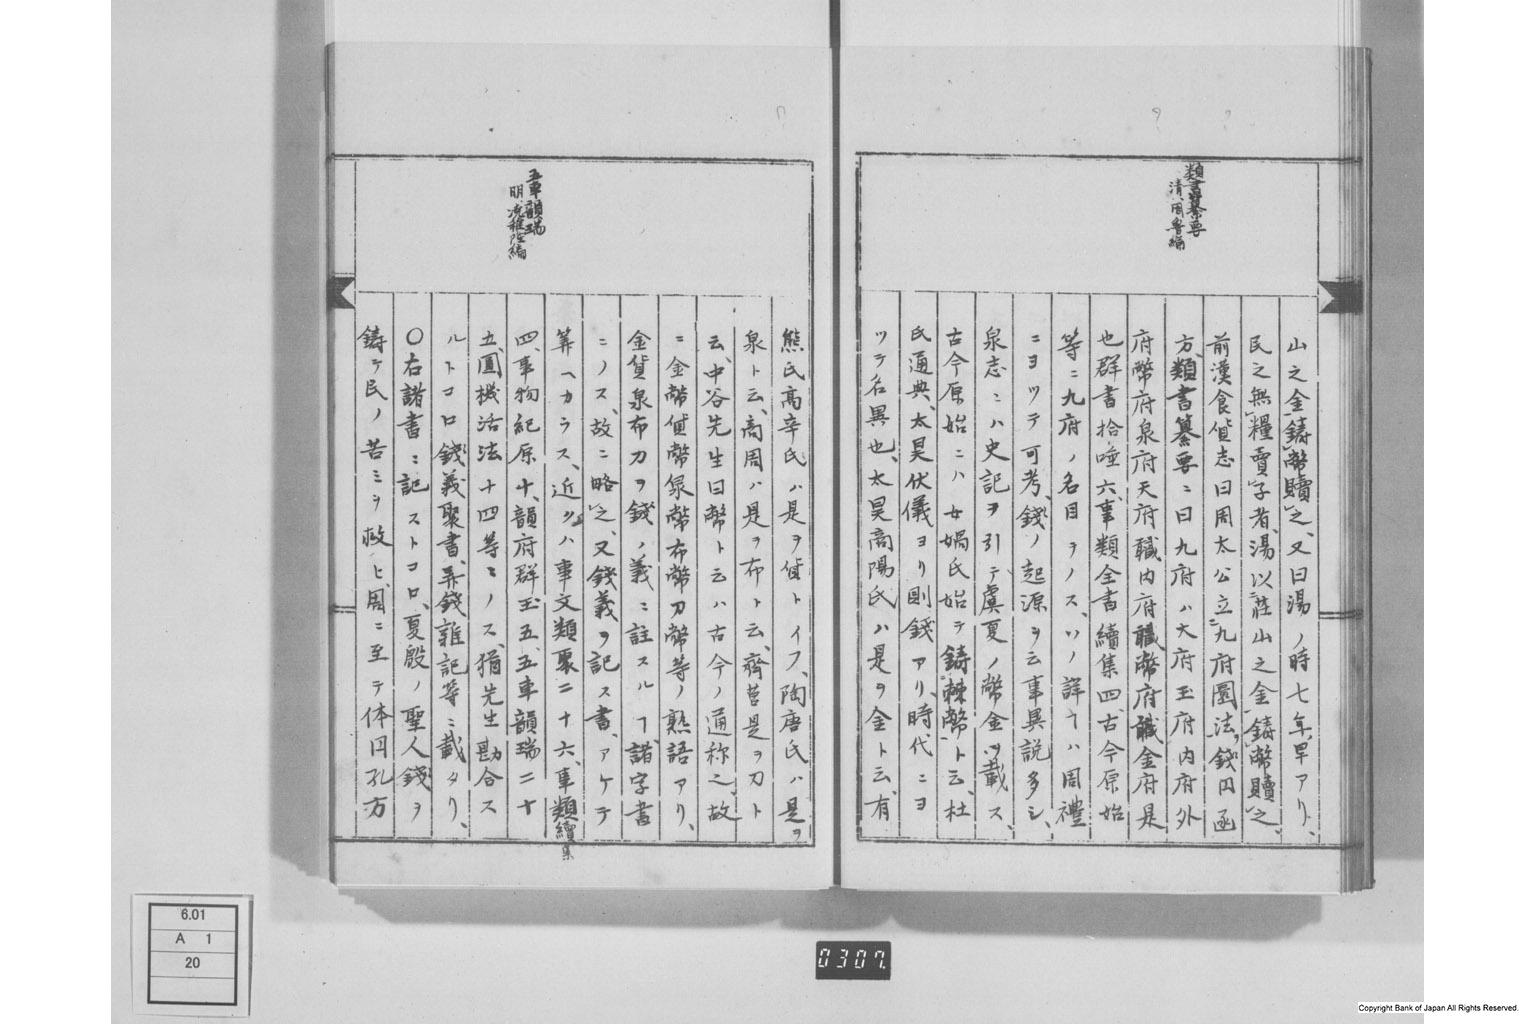 類書纂要
清、周魯編
山之金鋳幣贖之、又曰湯ノ時七年旱アリ、
民之無糧賣子者、湯以莊山之金鋳幣贖之、
前漢食貨志曰周太公立九府圜法、錢円函
方、類書纂要ニ曰九府ハ大府玉府内府外
府幣府泉府天府職内府職幣府職金府是
也群書拾唾六、事類全書續集四、古今原始
等ニ九府ノ名目ヲノス、ソノ詳ナハ周禮
ニヨツテ可考、錢ノ起源ヲ云事異説多シ、
泉志ニハ史記ヲ引テ虞夏ノ幣金ヲ載ス、
古今原始ニハ女媧氏始テ鋳棘幣ト云、杜
氏通典、太昊伏儀ヨリ則錢アリ、時代ニヨ
ツテ名異也、太昊高陽氏ハ是ヲ金ト云、有
五車韻瑞
明、凌稚隆編
熊氏高辛氏ハ是ヲ貨トイフ、陶唐氏ハ是ヲ
泉ト云、商周ハ是ヲ布ト云、齊莒是ヲ刀ト
云、中谷先生曰幣ト云ハ古今ノ通称之、故
ニ金幣貨幣泉幣布幣刀幣等ノ熟語アリ、
金貨泉布刀ヲ錢ノ義ニ註スルヿ諸字書
ニノス、故ニ略之、又錢義ヲ記ス書、アケテ
筭ヘカラス、近クハ事文類聚二十六、事類續集
四、事物紀原十、韻府群玉五、五車韻瑞二十
五、圓機活法十四等ニノス、猶先生勘合ス
ルトコロ錢義聚書、并錢雜記等ニ載タリ、
〇右諸書ニ記ストコロ、夏殷ノ聖人錢ヲ
鋳テ民ノ苦ミヲ救ヒ、周ニ至テ体円孔方
6.01
A 1
20
0307.
Copyright Bank of Japan All Rights Reserved.